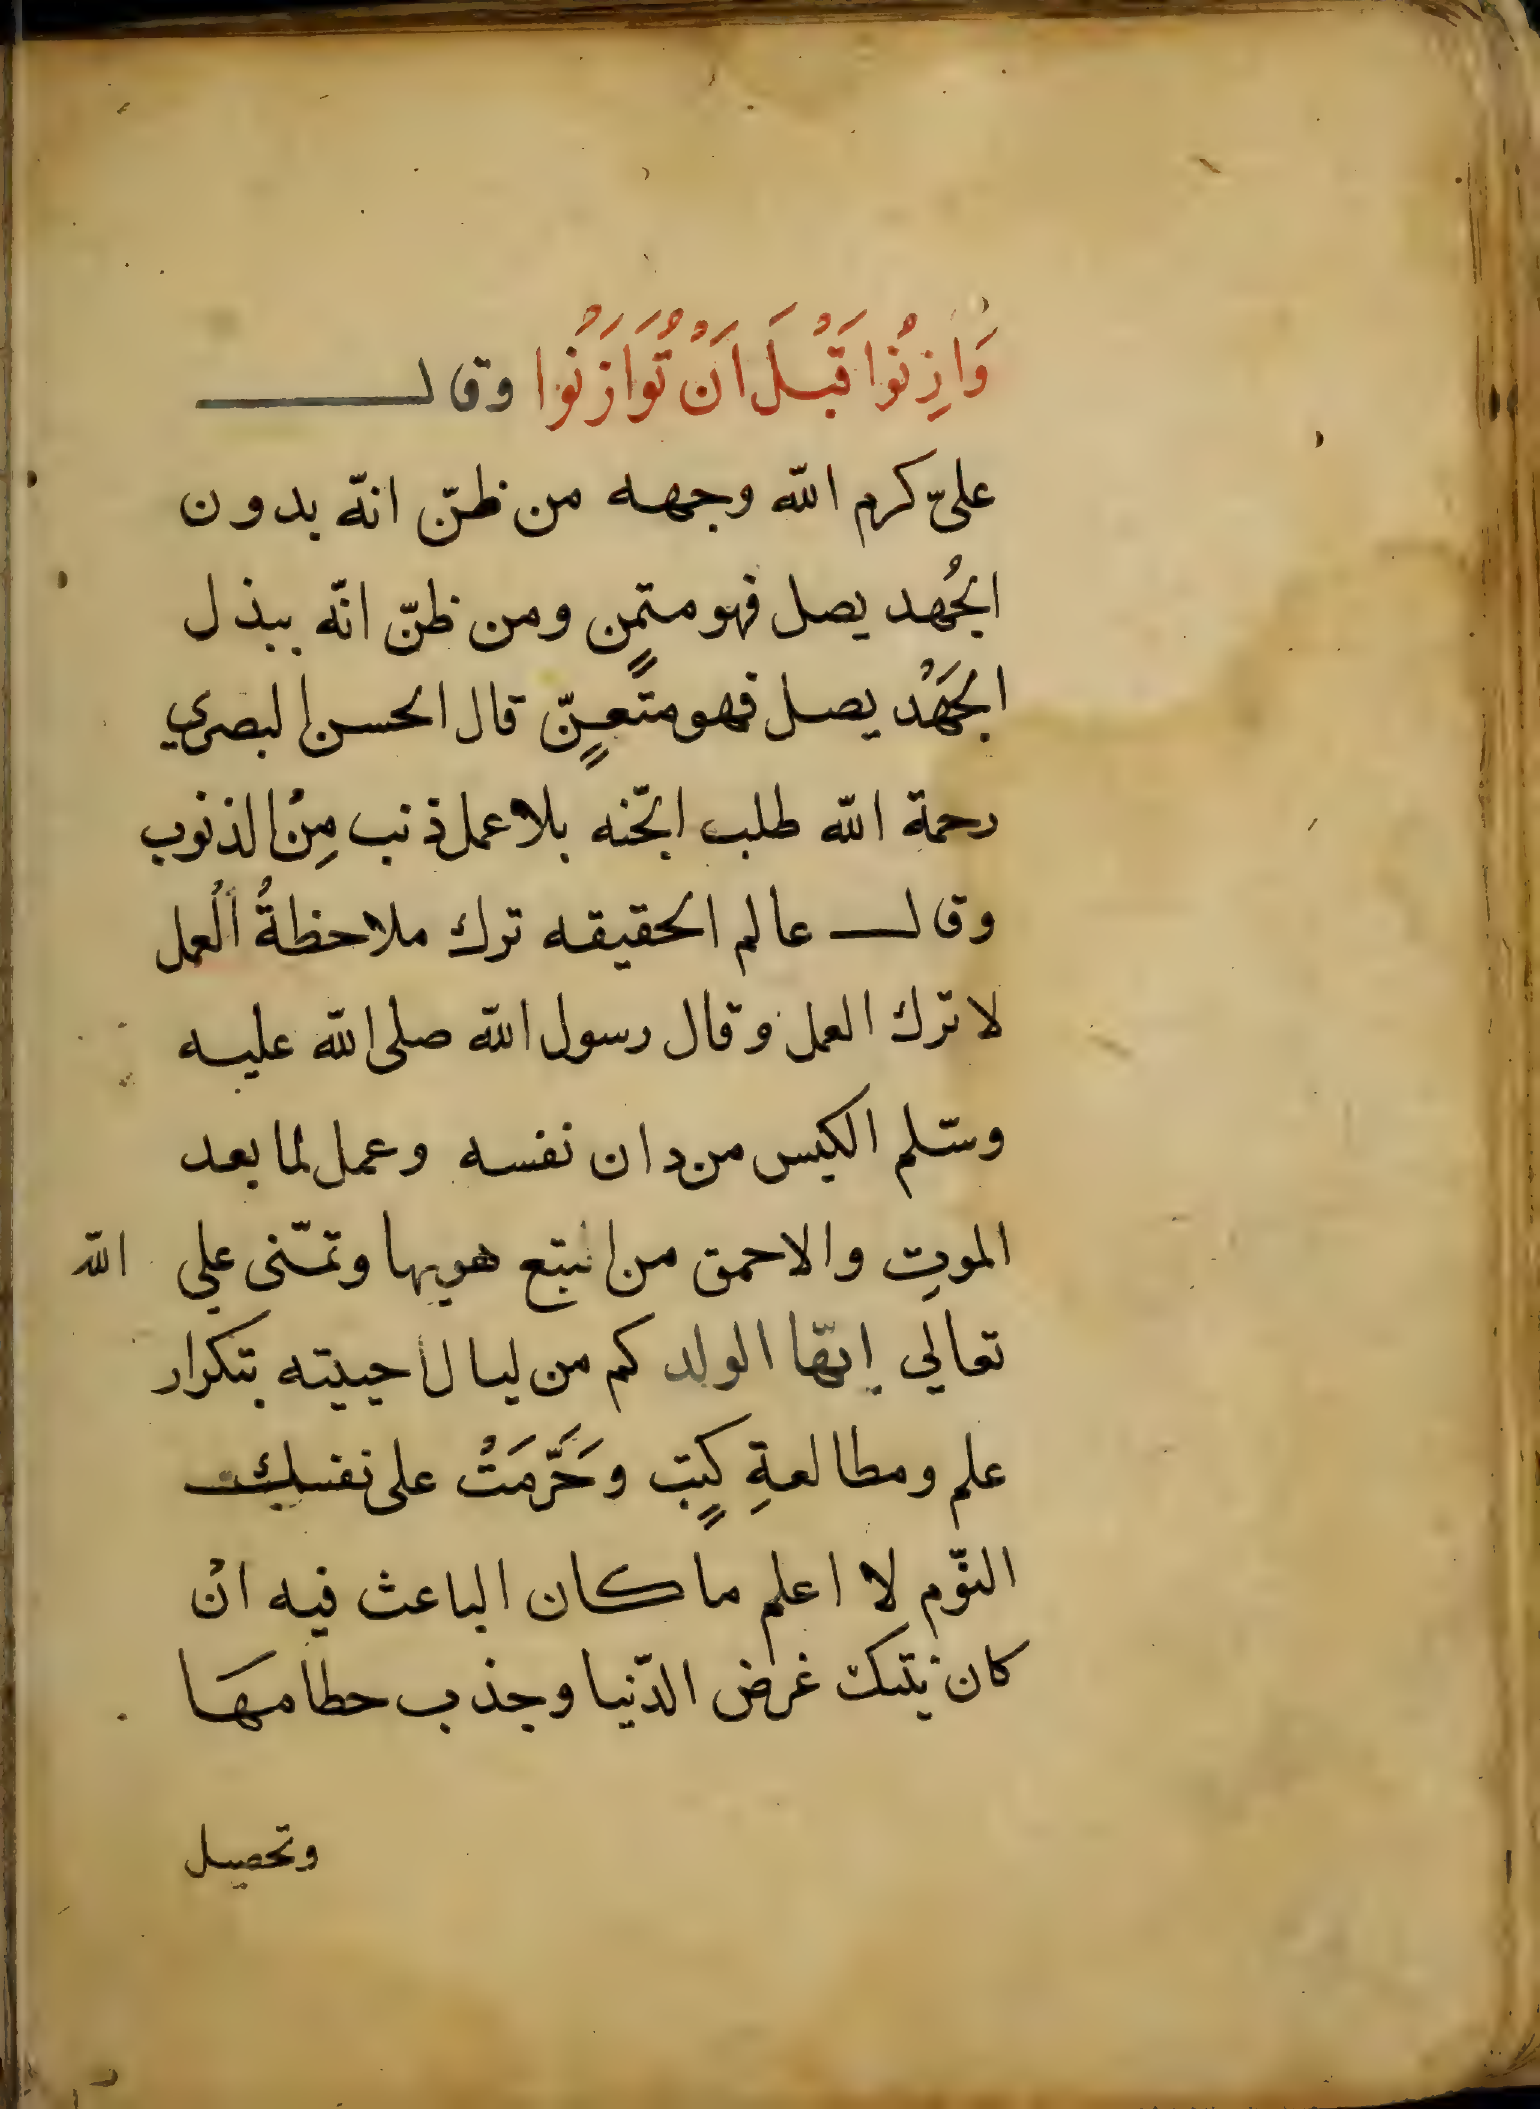 وَازِنُوا قَبْلَ اَنْ تُوَازَنُوا وقال
علىّ كرم الله وجهه من ظنّ انّه بدون
الجُهد يصل فهو متمنٍ ومن ظنّ انّه ببذل
الجَهْد يصل فهو متعنٍّ قال الحسن البصري
رحمة الله طلب الجّنه بلا عمل ذنب مِنْ الذنوب
وقال عالم الحقيقه ترك ملاحظةُ اْلعمل
لا ترك العمل وقال رسول الله صلى الله عليه
وسّلم الكيس من دان نفسه وعمل لما بعد
الموتِ والاحمق من اتبتع هويها وتمّنى علي الله
تعالي ايّها الولد كم من ليال احييته بتكرار
علم ومطالعةِ كتبٍ وحَرَّمَتْ على نفسك
النّوم لا اعلم ما كان الباعث فيه انْ
كان نيّتك غرض الدّنيا وجذب حطامهَا
وتحصيل